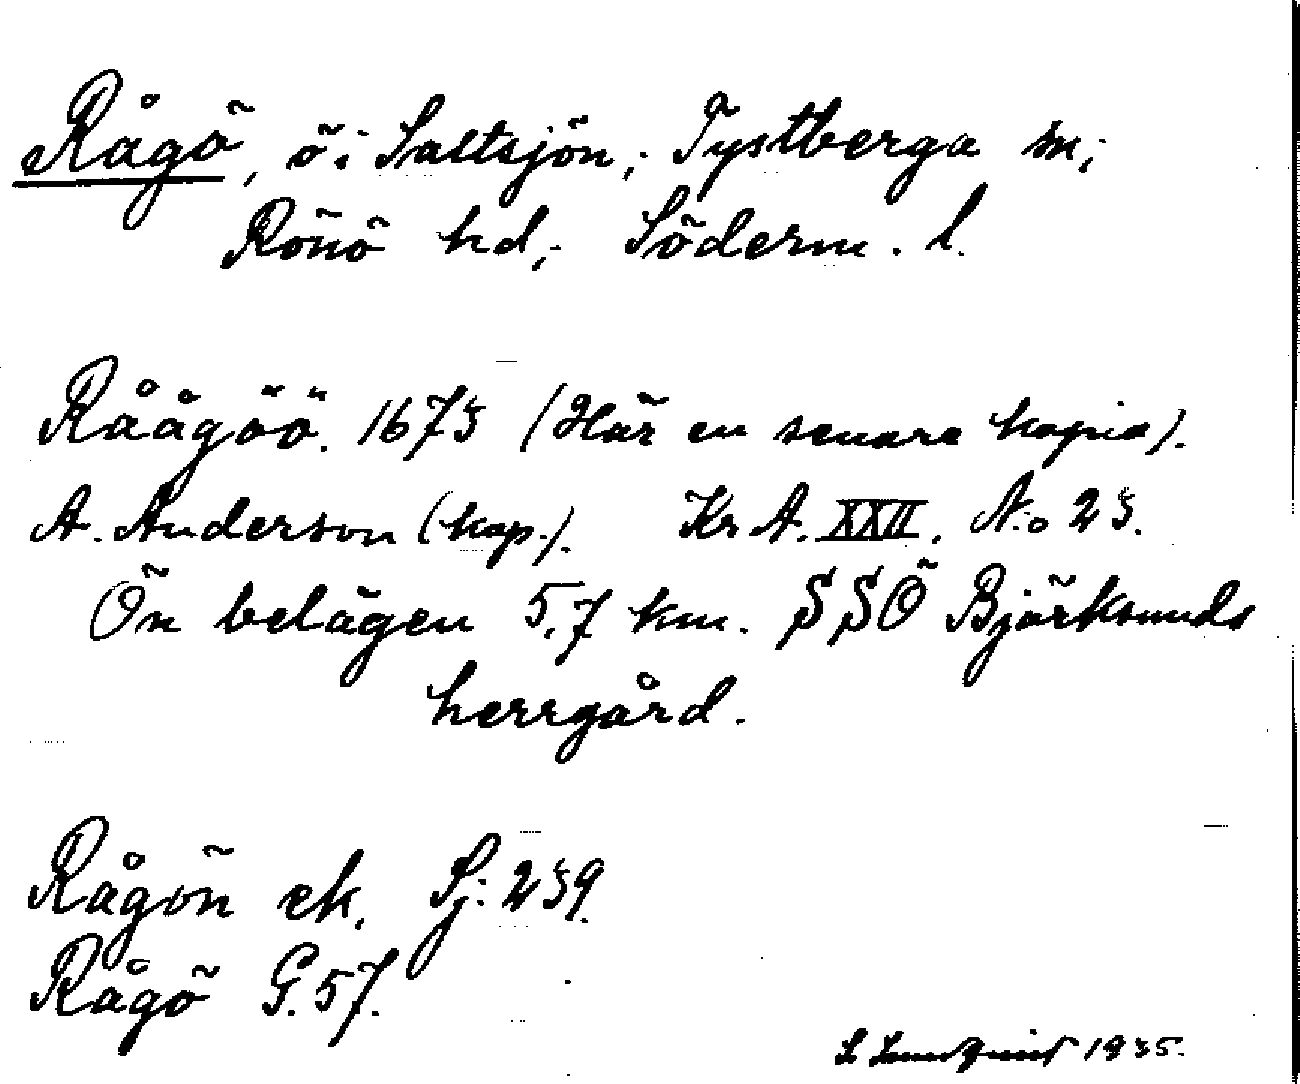 Rågö, ö i Saltsjön, Tystberga sn,
Rönö hd, Söderm. l.
Råågöö. 1673 (Här en senare kopia).
A. Anderson (kop.). Kr A. XXII. No 23.
Ön belägen 5,7 km. SSÖ Björksunds
herrgård.
Rågön ek. Sj. 239.
Rågö G. 57.
1935.